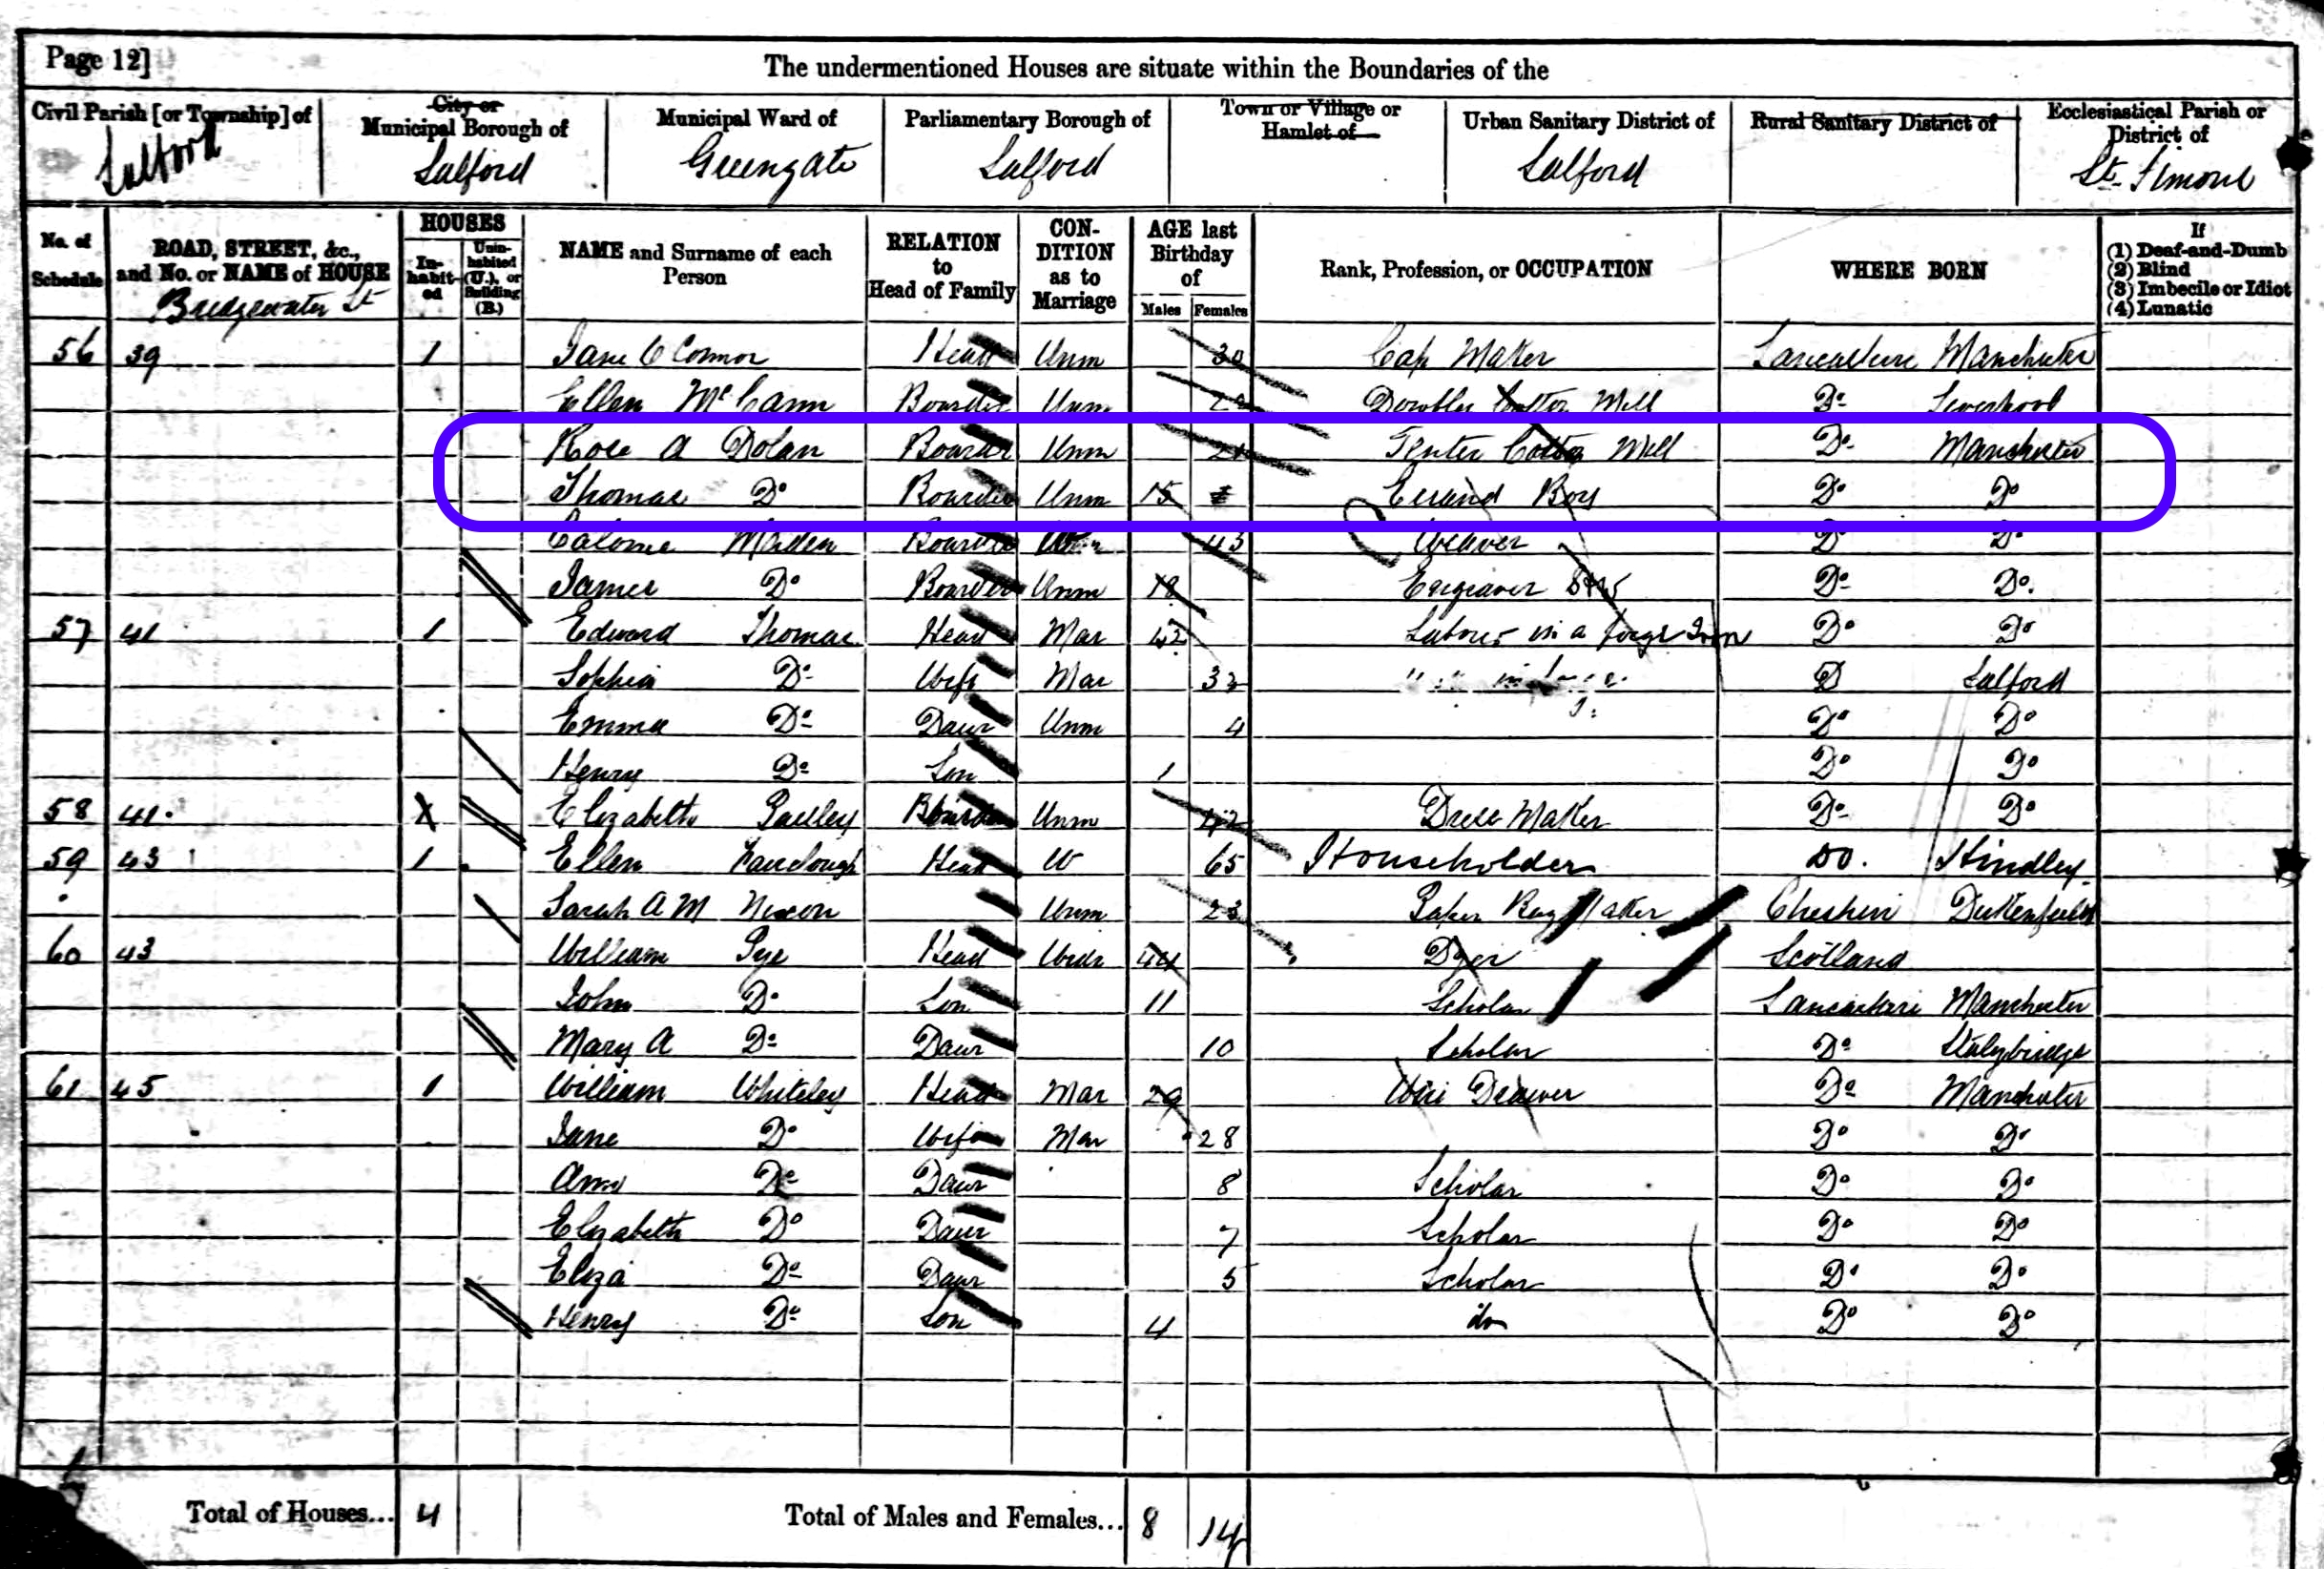 Page 12]
The undermentioned Houses are situate within the Boundaries of the
Civil Parish [or Township] of
City or Municipal Borough of
Municipal Ward of
Parliamentary Borough of
Town or Village or Hamlet of
Urban Sanitary District of
Rural Sanitary District of
Ecclesiastical Parish or District of
Salford Salford Greengate Salford Salford St. Simons
No. of Schedule
ROAD, STREET, &c., and No. or NAME of HOUSE
HOUSES
In-habit-ed
Unin-habited (U.), or Building (B.)
NAME and Surname of each Person
RELATION to Head of Family
CON-DITION as to Marriage
AGE last Birthday of
Males Females
Rank, Profession, or OCCUPATION
WHERE BORN
If
(1) Deaf-and-Dumb
(2) Blind
(3) Imbecile or Idiot
(4) Lunatic
Bridgewater St
56 39 1 Jane O Connor Head Unm 30 Cap Maker Lancashire Manchester
Ellen McCann Boarder Unm Doubler Cotton Mill Do Liverpool
Rose A Dolan Boarder Unm 21 Tenter Cotton Mill Do Manchester
Thomas Do Boarder Unm 15 Errand Boy Do Do
Maiden Boarder 43 Weaver Do Do
James Do Boarder Unm 18 Engraver Do Do.
57 41 1 Edward Thomas Head Mar 42 Labour in a forge Iron Do Do
Sophia Do Wife Mar D Salford
Emma Do Daur Unm 4 Do Do
Henry Do Son 1 Do Do
58 41. X Elizabeth Boarder Unm 42 Dress Maker Do Do
59 43 1 Ellen Fairclough Head W 65 Householder DO. Hindley
Sarah A M Nixon Unm 23 Paper Bag Maker Cheshire Dukenfield
60 43 William Pye Head Widr 44 Dyer Scotland
John Do Son 11 Scholar Lancashire Manchester
Mary A Do Daur 10 Scholar Do Stalybridge
61 45 1 William Whiteley Head Mar 29 Wire Drawer Do Manchester
Jane Do Wife Mar 28 Do Do
Ann Do Daur 8 Scholar Do Do
Elizabeth Do Daur 7 Scholar Do Do
Eliza Do Daur 5 Scholar Do Do
Henry Do Son 4 do Do Do
Total of Houses... 4
Total of Males and Females... 8 14